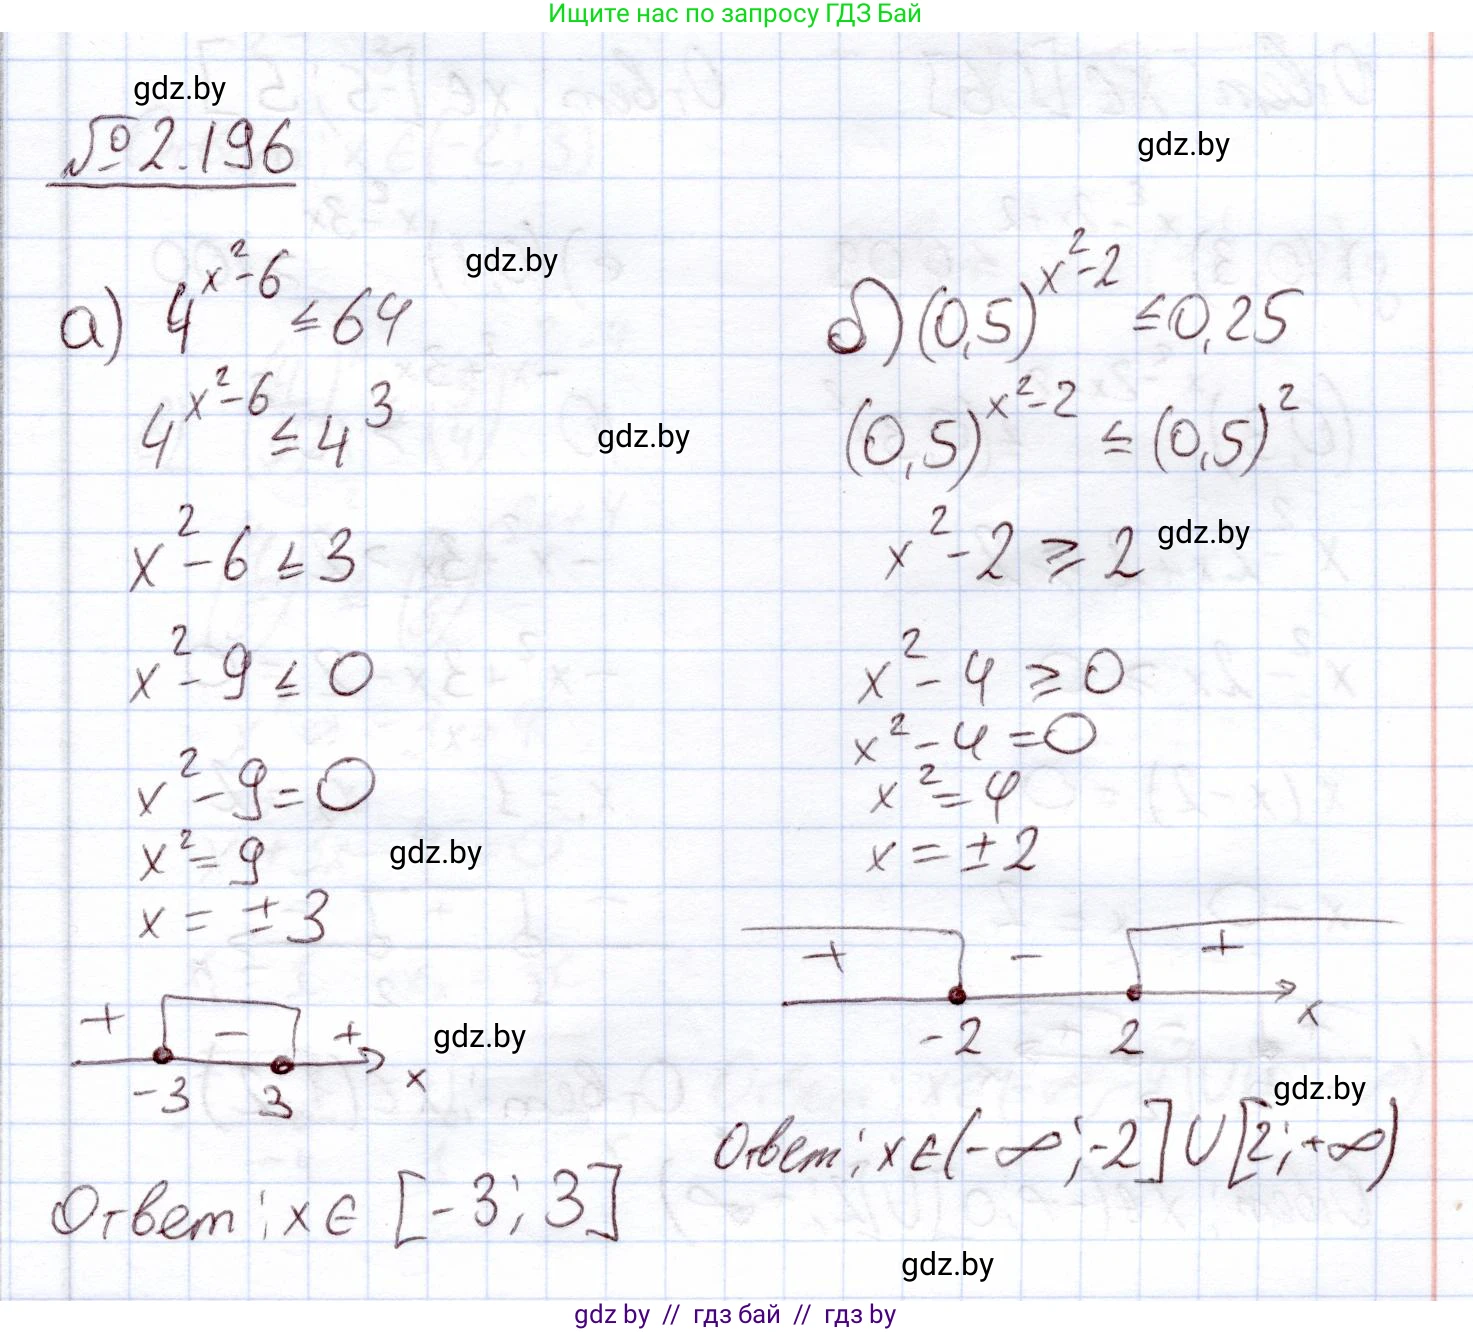 Ищите нас по запросу ГДЗ Бай
gdz.by
№ 2.196
gdz.by
gdz.by
а) 4^(x²-6) ≤ 64
4^(x²-6) ≤ 4³
gdz.by
x² - 6 ≤ 3
x² - 9 ≤ 0
x² - 9 = 0
x² = 9
gdz.by
x = ± 3
+ - +
gdz.by
-3 3 x
Ответ: x ∈ [-3; 3]
б) (0,5)^(x²-2) ≤ 0,25
(0,5)^(x²-2) ≤ (0,5)²
x² - 2 ≥ 2
gdz.by
x² - 4 ≥ 0
x² - 4 = 0
x² = 4
x = ± 2
+ - +
-2 2 x
gdz.by
Ответ: x ∈ (-∞; -2] ∪ [2; +∞)
gdz.by
gdz by // гдз бай // гдз by